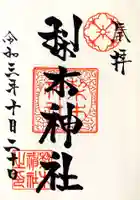 奉拝
梨木神社
令和三年十月二十日